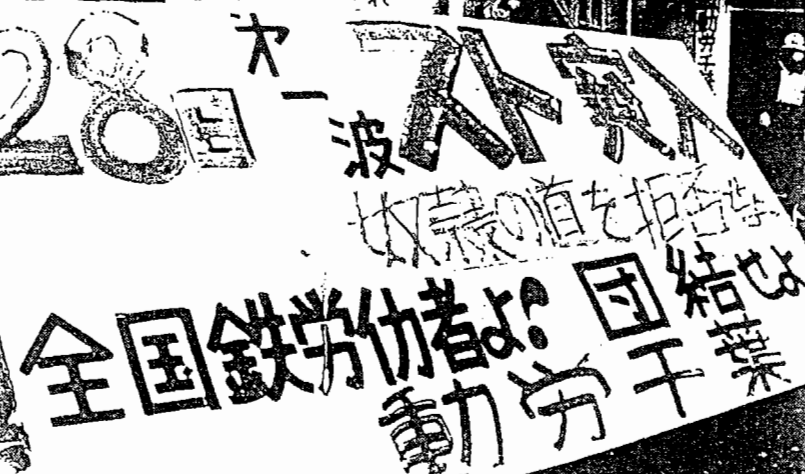 28日 才一波 スト突入
奴隷の道を拒否せよ
全国鉄労仂者よ! 団結せよ
動労千葉